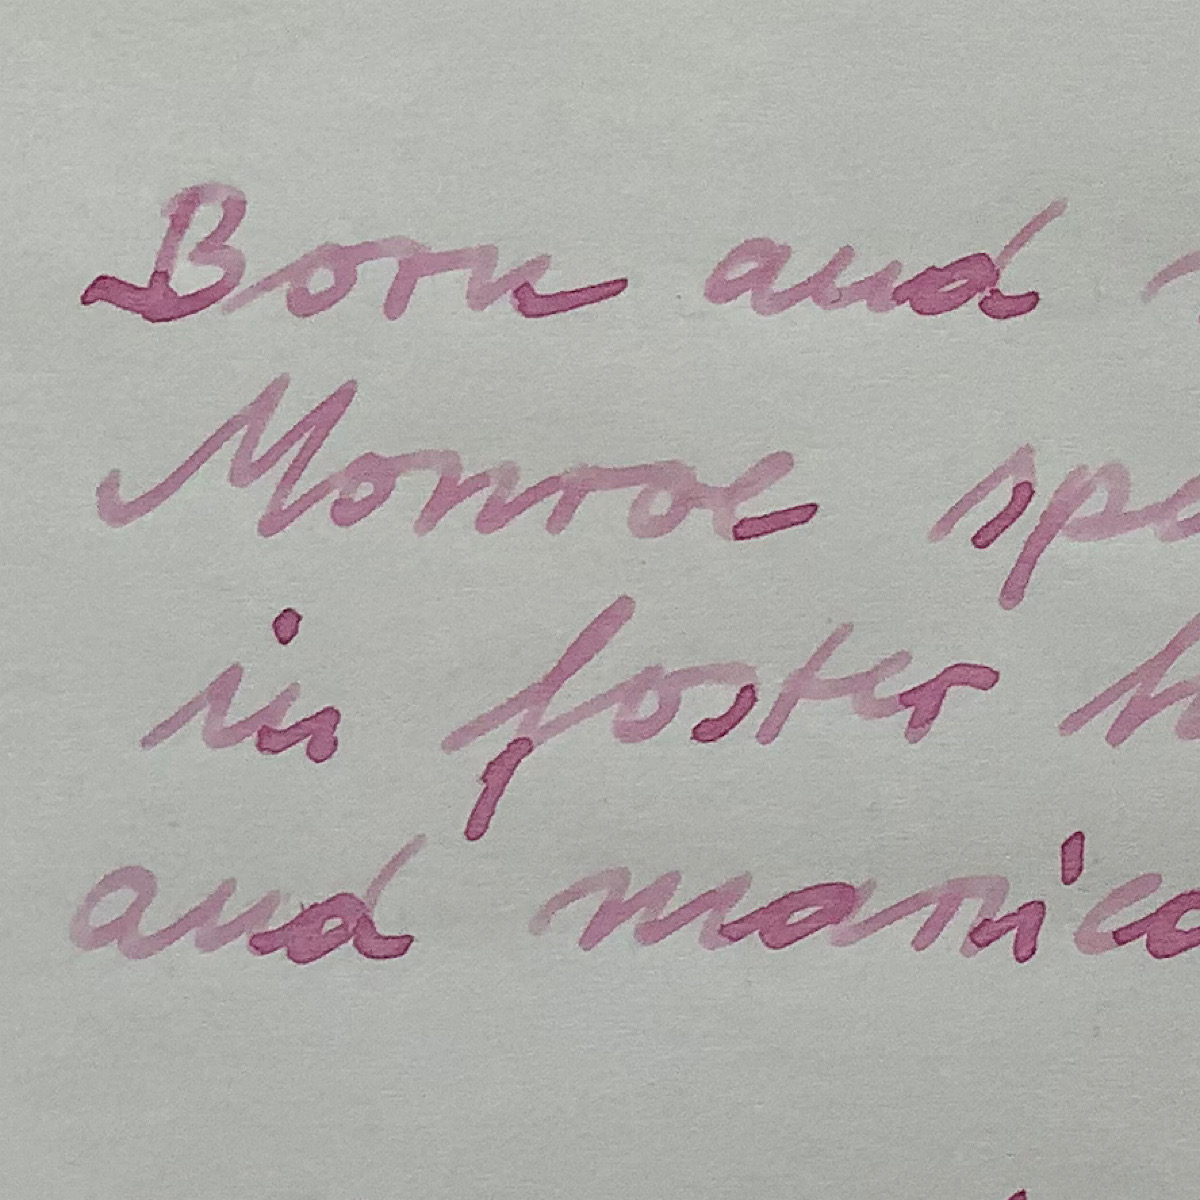 Born and
Monroe spe
in foster h
and marrie